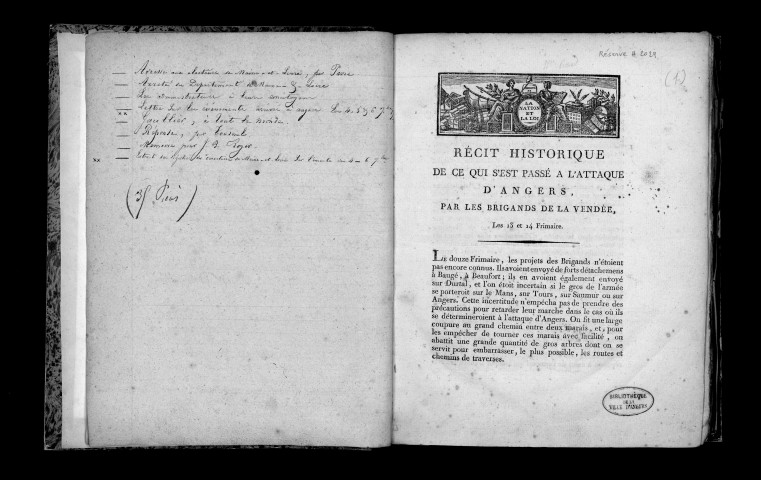 Adresse aux électeurs de Maine-et-Loire, par
Arrêté du Département de Maine & Loire
Les administrateurs à leurs concitoyens
Lettre sur les événements arrivés à angers les 4. 5 & 6 7bre
à tout le monde.
Réponse, par
Mémoire pour J. B.
(35 Pièces)
Réserve H. 2029
(1)
LA
NATION
ET
LA LOI
RÉCIT HISTORIQUE
DE CE QUI S'EST PASSÉ A L'ATTAQUE
D'ANGERS,
PAR LES BRIGANDS DE LA VENDÉE,
Les 13 et 14 Frimaire.
LE douze Frimaire, les projets des Brigands n'étoient
pas encore connus. Ils avoient envoyé de forts détachemens
à Baugé, à Beaufort; ils en avoient également envoyé
sur Durtal, et l'on étoit incertain si le gros de l'armée
se porteroit sur le Mans, sur Tours, sur Saumur ou sur
Angers. Cette incertitude n'empêcha pas de prendre des
précautions pour retarder leur marche dans le cas où ils
se détermineroient à l'attaque d'Angers. On fit une large
coupure au grand chemin entre deux marais, et, pour
les empêcher de tourner ces marais avec facilité, on
abattit une grande quantité de gros arbres dont on se
servit pour embarrasser, le plus possible, les routes et
chemins de traverses.
BIBLIOTHÈQUE
DE LA
VILLE D'ANGERS